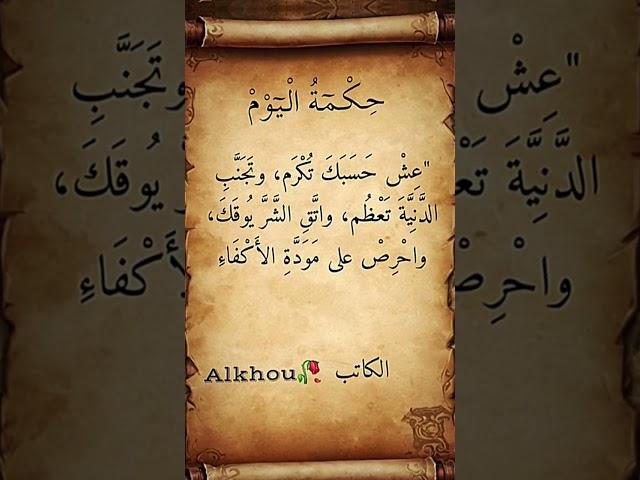 حِكْمَةُ الْيَوْمْ
"عِشْ حَسَبَكَ تُكْرَم، وتَجَنَّبِ
الدَّنِيَّةَ تَعْظُم، واتَّقِ الشَّرَّ يُوقَكَ،
واحْرِصْ على مَوَدَّةِ الأَكْفَاءِ
الكاتب Alkhou🥀